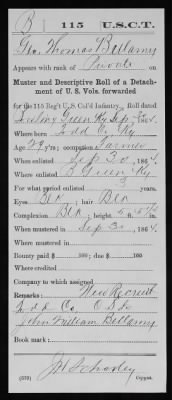 B | 115 | U.S.C.T.
Geo. Thomas Bellamy
Appears with rank of Private on
Muster and Descriptive Roll of a Detach-
ment of U. S. Vols. forwarded
for the 115 Reg't U.S. Col'd Infantry. Roll dated
Green Ky Sep 30, 1864.
Where born Todd Co. Ky
Age 29 y'rs; occupation Farmer
When enlisted Sep 30, 1864.
Where enlisted B Green Ky
For what period enlisted 3 years.
Eyes Blk; hair Blk
Complexion Blk; height 5 ft. in.
When mustered in Sep 30, 1864.
Where mustered in
Bounty paid $ 100; due $ 100
Where credited
Company to which assigned
Remarks: New Recruit
Todd Co.
John William Bellamy
Book mark:
(339) Copyist.